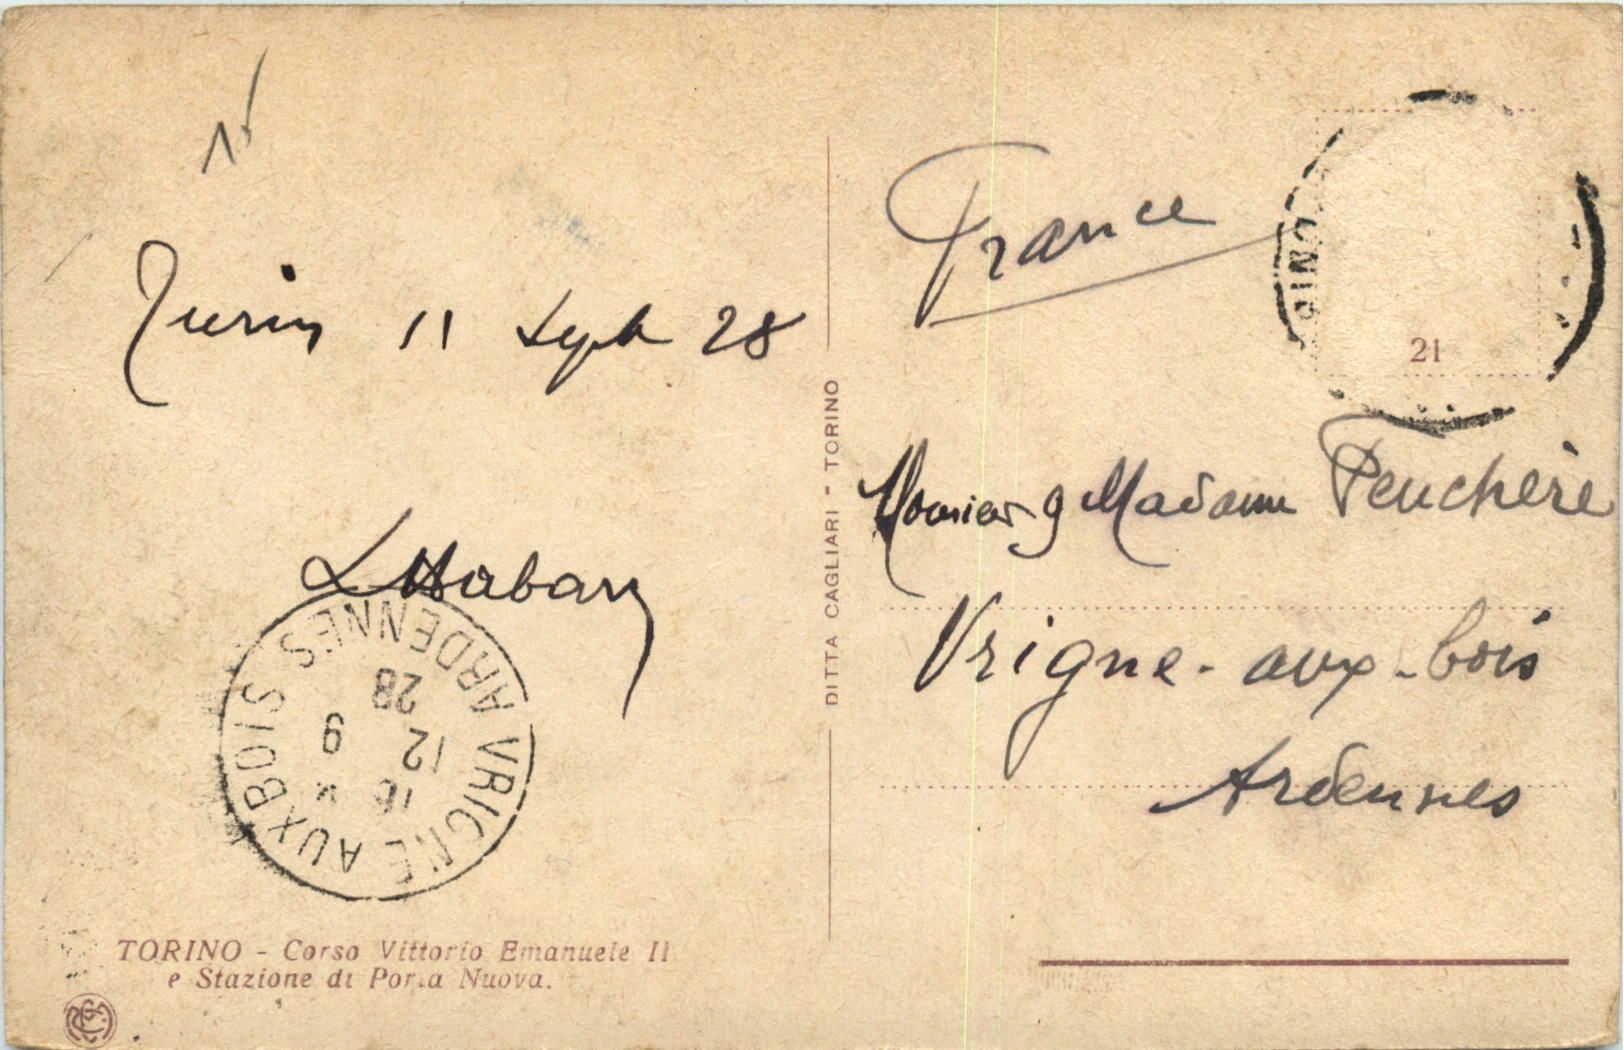 15
Turin 11 Sept 28
France
21
DITTA CAGLIARI - TORINO
Monsieur & Madame Peuchère
Vrigne-aux-bois
Ardennes
VRIGNE AUX BOIS
ARDENNES
16
12
9
28
TORINO - Corso Vittorio Emanuele II
e Stazione di Porta Nuova.